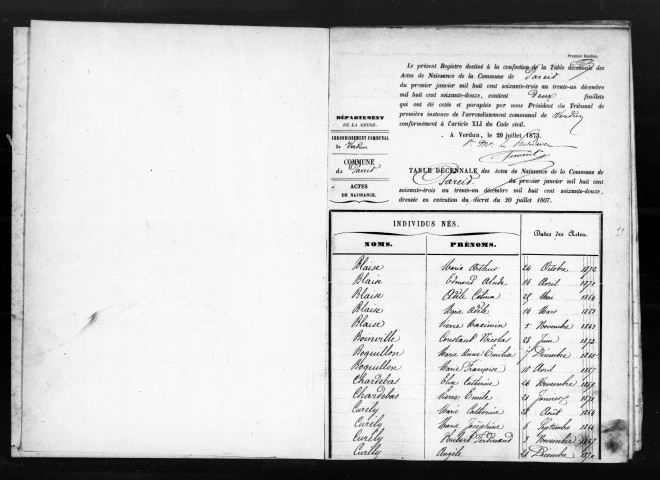 Premier feuillet.
Le présent Registre destiné à la confection de la Table décennale des
Actes de Naissance de la Commune de Pareid
du premier janvier mil huit cent soixante-trois au trente-un décembre
mil huit cent soixante-douze, contient Deux feuillets
qui ont été cotés et paraphés par nous Président du Tribunal de
première instance de l'arrondissement communal de Verdun
conformément à l'article XLI du Code civil.
A Verdun, le 20 juillet 1873.
DÉPARTEMENT
DE LA MEUSE.
ARRONDISSEMENT COMMUNAL
de Verdun
COMMUNE
de Pareid
ACTES
DE NAISSANCE.
TABLE DÉCENNALE des Actes de Naissance de la Commune de
Pareid. du premier janvier mil huit cent
soixante-trois au trente-un décembre mil huit cent soixante-douze,
dressée en exécution du décret du 20 juillet 1807.
INDIVIDUS NÉS. Dates des Actes.
NOMS. PRÉNOMS.
Blaise Marie Arthur 24 Octobre 1872
Blaise Edmond 16 Avril
Blaise Adèle Célina 25 Mai 1864
Blaise Marie Adèle 14 Mars
Blaise Pierre Maximin 5 Novembre 1863
Boinville Constant Nicolas 28 Juin 1872
Boquillon Marie Anne Emilia 7 Décembre
Boquillon Marie Françoise 10 Avril 1867
Chardebas Elise Catherine 26 Novembre
Chardebas Pierre Emile 21 Janvier
Curély Marie Catherine 28 Août 1864
Curély Marie Joséphine 6 Septembre 1864
Curély Hubert Ferdinand 2 Novembre 1867
Curély Angèle 21 Décembre 1870